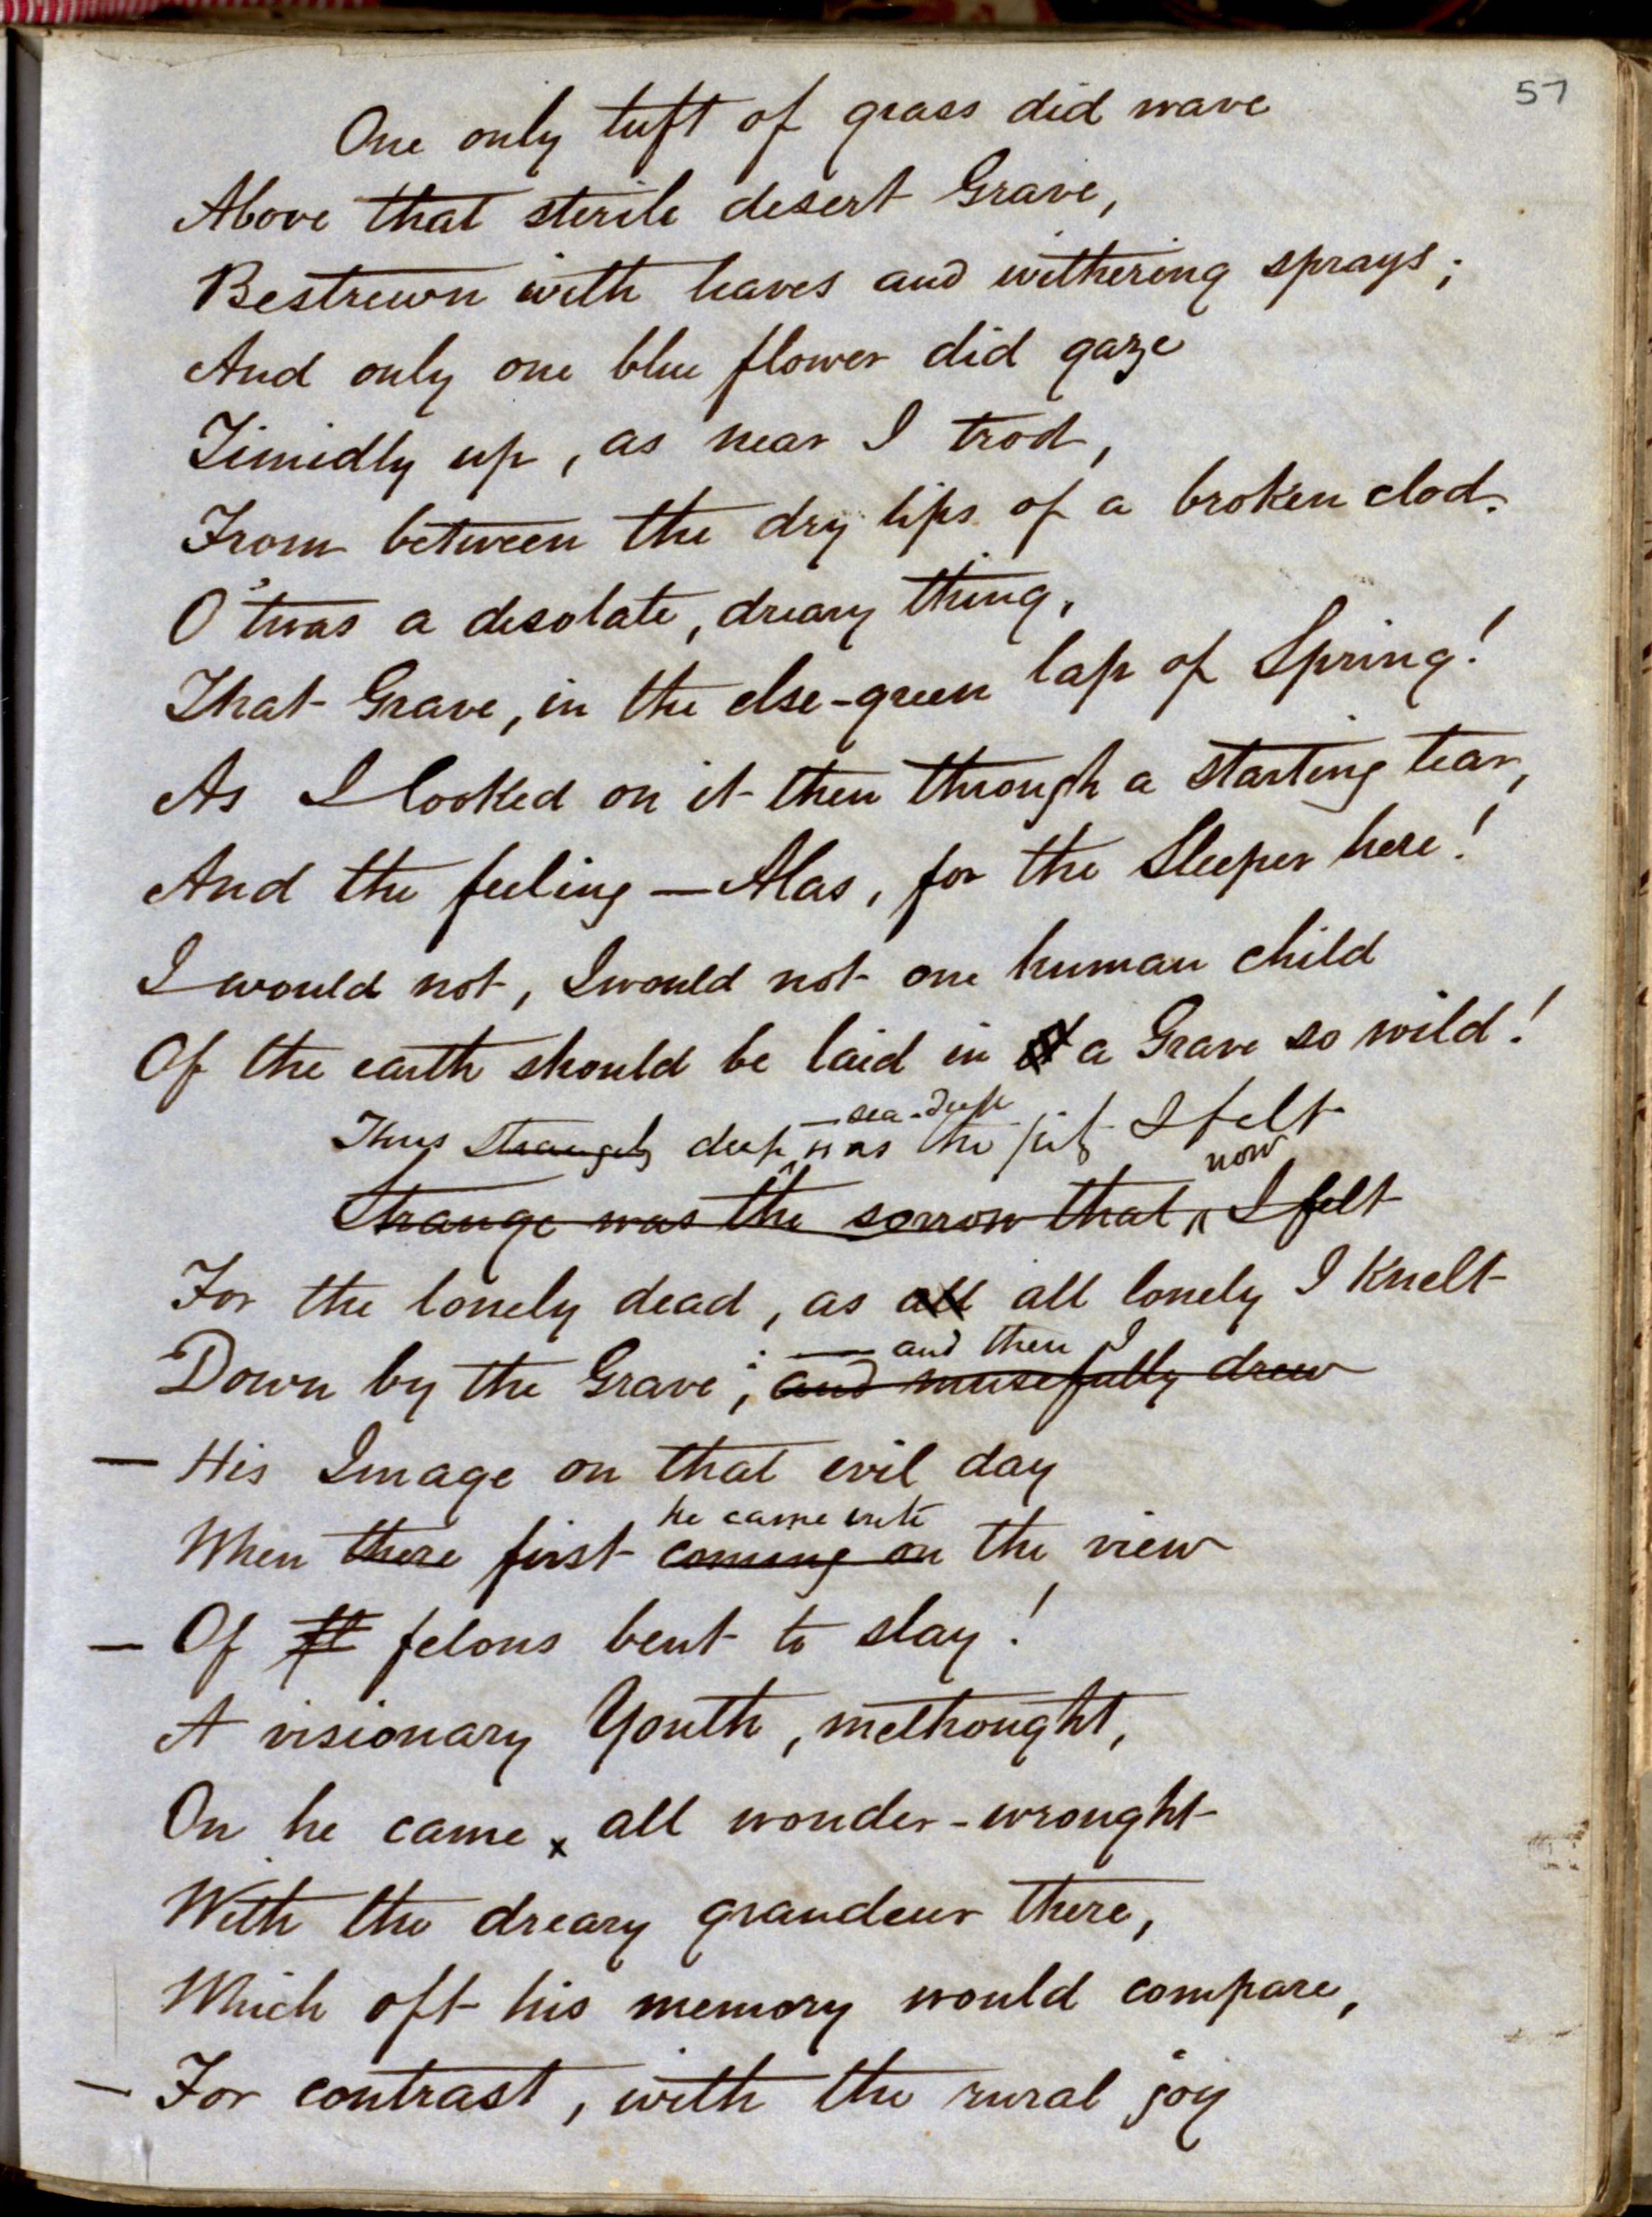 57
One only tuft of grass did wave
Above that sterile desert Grave,
Bestrewn with leaves and withering sprays;
And only one blue flower did gaze
Timidly up, as near I trod,
From between the dry lips of a broken clod.
O 'twas a desolate, dreary thing,
That Grave, in the else-green lap of Spring!
As I looked on it then through a starting tear,
And the feeling — Alas, for the Sleeper here!
I would not, I would not one human child
Of the earth should be laid in a Grave so wild!
— sea-deep
Thus strangely deep was the pity I felt
now
Strange was the sorrow that ^ I felt
For the lonely dead, as all all lonely I knelt
— and then I
Down by the Grave; and musefully drew
— His Image on that evil day
he came into
When there first coming on the view
— Of felons bent to slay!
A visionary Youth, methought,
On he came x all wonder-wrought
With the dreary grandeur there,
Which oft his memory would compare,
— For contrast, with the rural joy